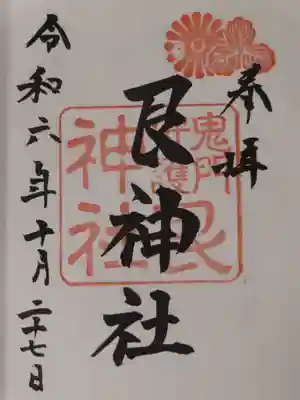 奉拝
艮神社
鬼門守護艮
神社
令和六年十月二十七日